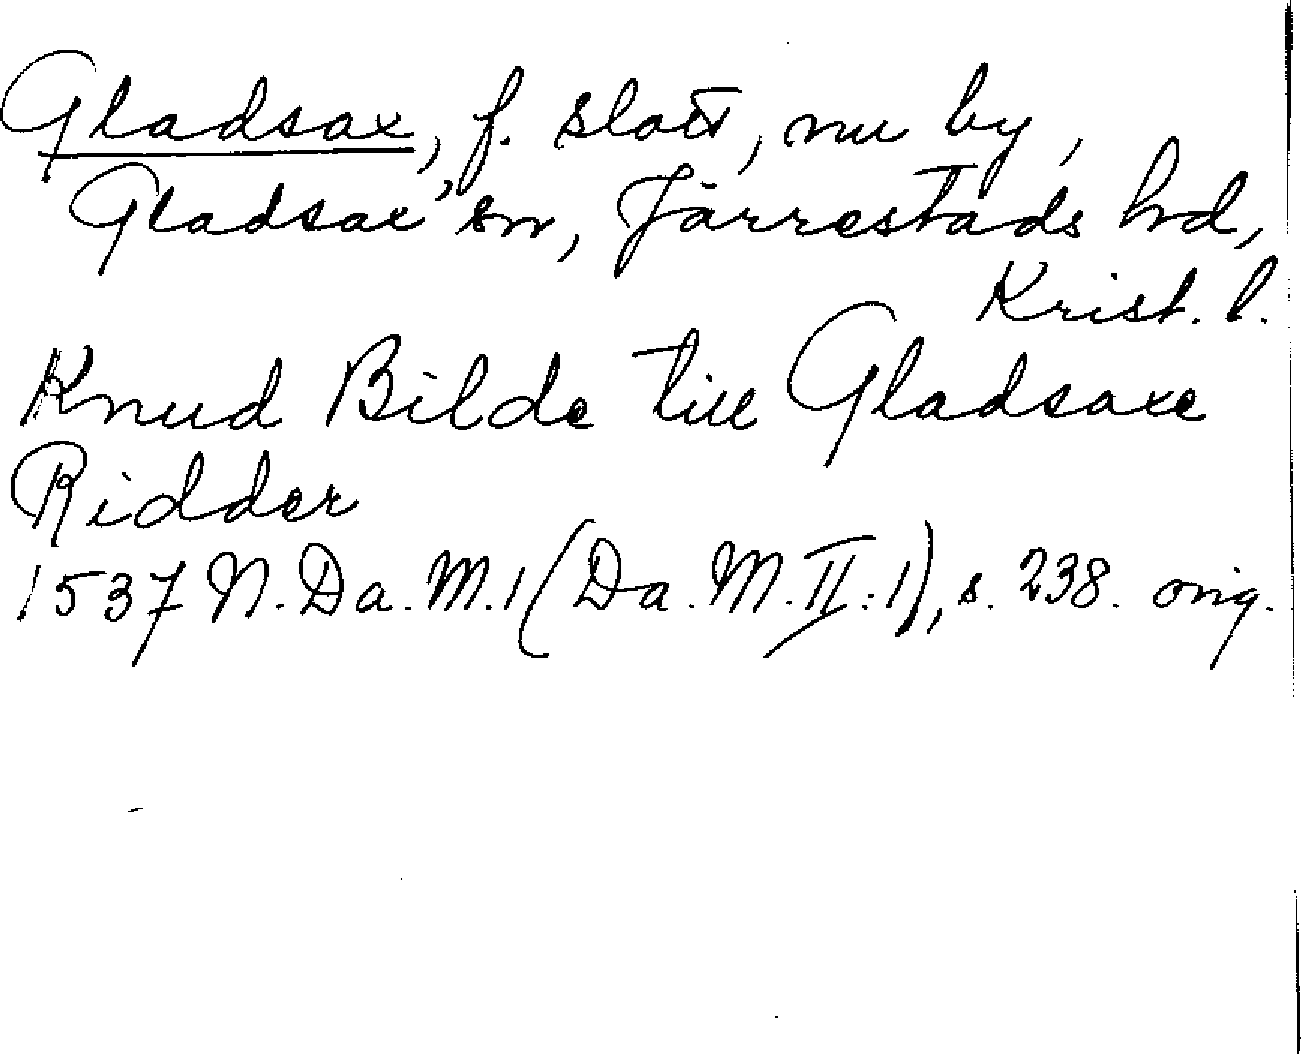 Gladsax, f. slott, nu by,
Gladsax' sn, Järrestads hd,
Krist. l.
Knud Bilde till Gladsaxe
Ridder
1537 N. Da. M. 1 (Da. M. II: 1), s. 238. orig.